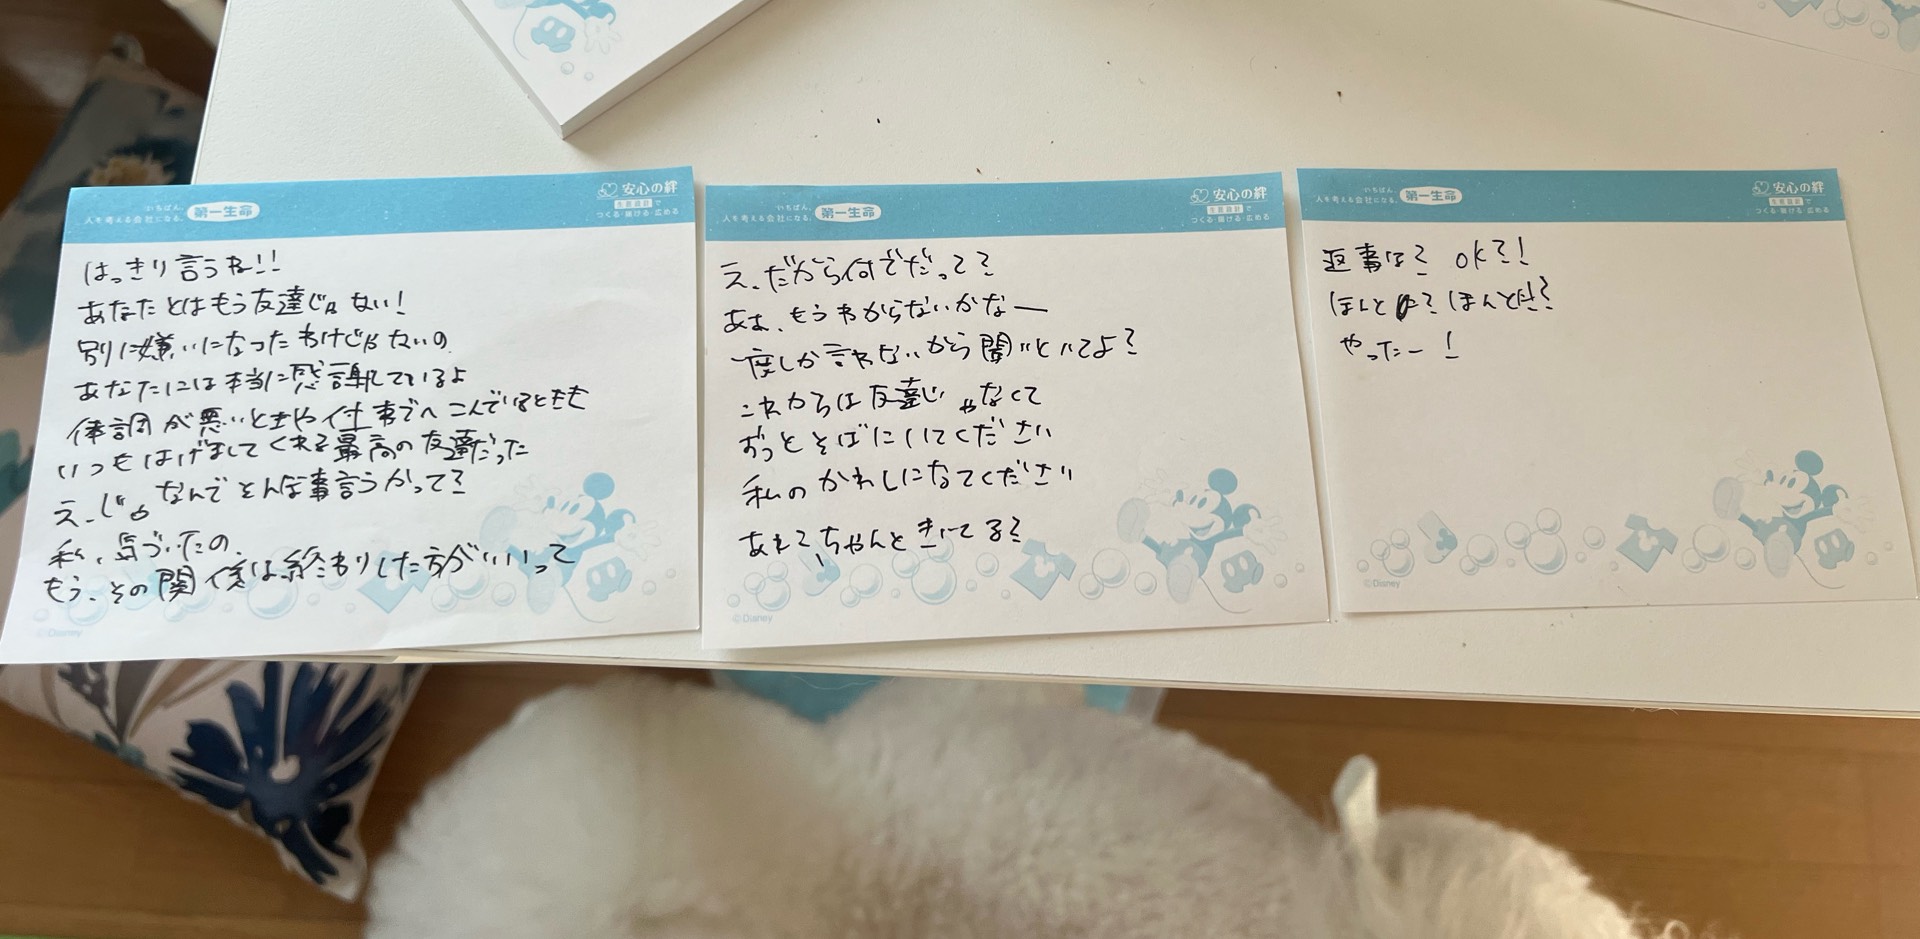 いちばん、
人を考える会社になる。
第一生命
安心の絆
生涯設計で
つくる・届ける・広める
はっきり言うね!!
あなたとはもう友達じゃない!
別に嫌いになったわけじゃないの
あなたには本当に感謝しているよ
体調が悪いときや仕事でへこんでいるときも
いつもはげましてくれる最高の友達だった
え、じゃなんでそんな事言うかって?
私、気づいたの、
もう、その関係は終わりした方がいいって
©Disney
いちばん、
人を考える会社になる。
第一生命
安心の絆
生涯設計で
つくる・届ける・広める
え、だから何でだって?
あぁ、もうわからないかなー
一度しか言わないから聞いといてよ?
これからは友達じゃなくて
ずっとそばにいてください
私のかれしになてください
あれ?、ちゃんときいてる?
©Disney
いちばん、
人を考える会社になる。
第一生命
安心の絆
生涯設計で
つくる・届ける・広める
返事は? OK?!
ほんとに? ほんとに?
やったー!
©Disney